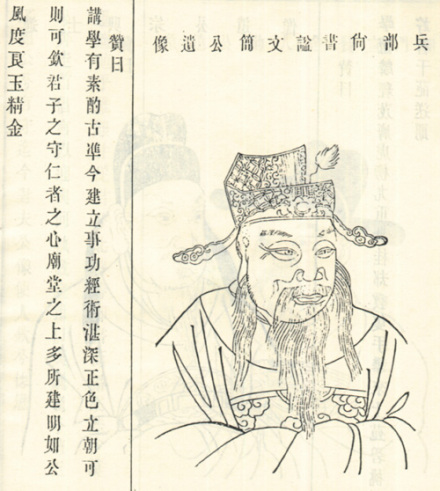 兵部尙書謚文簡公遺像
贊曰
講學有素酌古準今建立事功經術湛深正色立朝可
則可欽君子之守仁者之心廟堂之上多所建明如公
風度良玉精金